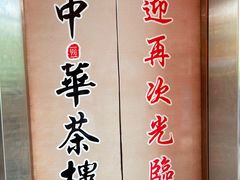 中華茶樓
迎再次光臨